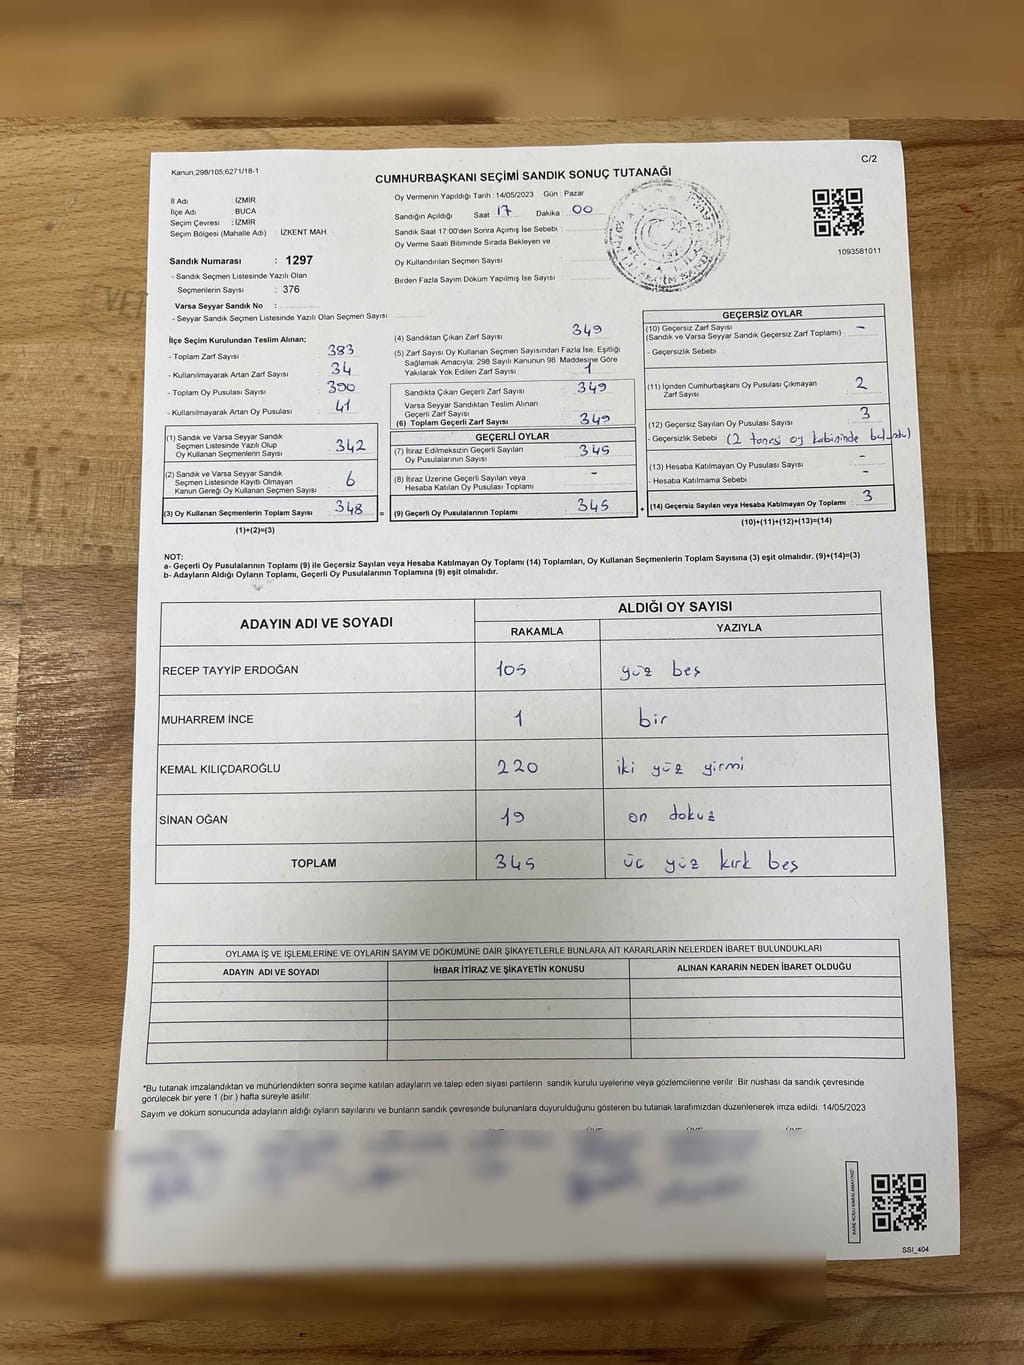 C/2
Kanun;298/105;6271/18-1
CUMHURBAŞKANI SEÇİMİ SANDIK SONUÇ TUTANAĞI
İl Adı : İZMİR
İlçe Adı : BUCA
Seçim Çevresi : İZMİR
Seçim Bölgesi (Mahalle Adı) : İZKENT MAH.
Oy Vermenin Yapıldığı Tarih : 14/05/2023 Gün : Pazar
Sandığın Açıldığı Saat 17 Dakika 00
Sandık Saat 17:00'den Sonra Açımış İse Sebebi :
Oy Verme Saati Bitiminde Sırada Bekleyen ve
Oy Kullandırılan Seçmen Sayısı :
Birden Fazla Sayım Döküm Yapılmış İse Sayısı :
1093581011
Sandık Numarası : 1297
- Sandık Seçmen Listesinde Yazılı Olan
Seçmenlerin Sayısı : 376
Varsa Seyyar Sandık No :
- Seyyar Sandık Seçmen Listesinde Yazılı Olan Seçmen Sayısı :
İlçe Seçim Kurulundan Teslim Alınan;
- Toplam Zarf Sayısı : 383
- Kullanılmayarak Artan Zarf Sayısı : 34
- Toplam Oy Pusulası Sayısı : 390
- Kullanılmayarak Artan Oy Pusulası : 41
(1) Sandık ve Varsa Seyyar Sandık
Seçmen Listesinde Yazılı Olup
Oy Kullanan Seçmenlerin Sayısı : 342
(2) Sandık ve Varsa Seyyar Sandık
Seçmen Listesinde Kayıtlı Olmayan
Kanun Gereği Oy Kullanan Seçmen Sayısı : 6
(3) Oy Kullanan Seçmenlerin Toplam Sayısı : 348
(1)+(2)=(3)
(4) Sandıktan Çıkan Zarf Sayısı : 349
(5) Zarf Sayısı Oy Kullanan Seçmen Sayısından Fazla İse, Eşitliği
Sağlamak Amacıyla; 298 Sayılı Kanunun 98. Maddesine Göre
Yakılarak Yok Edilen Zarf Sayısı : 1
Sandıkta Çıkan Geçerli Zarf Sayısı : 349
Varsa Seyyar Sandıktan Teslim Alınan
Geçerli Zarf Sayısı :
(6) Toplam Geçerli Zarf Sayısı : 349
GEÇERLİ OYLAR
(7) İtiraz Edilmeksizin Geçerli Sayılan
Oy Pusulalarının Sayısı : 345
(8) İtiraz Üzerine Geçerli Sayılan veya
Hesaba Katılan Oy Pusulası Toplamı : -
= (9) Geçerli Oy Pusulalarının Toplamı : 345 +
GEÇERSİZ OYLAR
(10) Geçersiz Zarf Sayısı
(Sandık ve Varsa Seyyar Sandık Geçersiz Zarf Toplamı) : -
- Geçersizlik Sebebi :
(11) İçinden Cumhurbaşkanı Oy Pusulası Çıkmayan
Zarf Sayısı : 2
(12) Geçersiz Sayılan Oy Pusulası Sayısı : 3
- Geçersizlik Sebebi : (2 tanesi oy kabininde bulundu)
(13) Hesaba Katılmayan Oy Pusulası Sayısı : -
- Hesaba Katılmama Sebebi : -
(14) Geçersiz Sayılan veya Hesaba Katılmayan Oy Toplamı : 3
(10)+(11)+(12)+(13)=(14)
NOT:
a- Geçerli Oy Pusulalarının Toplamı (9) ile Geçersiz Sayılan veya Hesaba Katılmayan Oy Toplamı (14) Toplamları, Oy Kullanan Seçmenlerin Toplam Sayısına (3) eşit olmalıdır. (9)+(14)=(3)
b- Adayların Aldığı Oyların Toplamı, Geçerli Oy Pusulalarının Toplamına (9) eşit olmalıdır.
ADAYIN ADI VE SOYADI
ALDIĞI OY SAYISI
RAKAMLA YAZIYLA
RECEP TAYYİP ERDOĞAN 105 yüz beş
MUHARREM İNCE 1 bir
KEMAL KILIÇDAROĞLU 220 iki yüz yirmi
SİNAN OĞAN 19 on dokuz
TOPLAM 345 üç yüz kırk beş
OYLAMA İŞ VE İŞLEMLERİNE VE OYLARIN SAYIM VE DÖKÜMÜNE DAİR ŞİKAYETLERLE BUNLARA AİT KARARLARIN NELERDEN İBARET BULUNDUKLARI
ADAYIN ADI VE SOYADI İHBAR İTİRAZ VE ŞİKAYETİN KONUSU ALINAN KARARIN NEDEN İBARET OLDUĞU
*Bu tutanak imzalandıktan ve mühürlendikten sonra seçime katılan adayların ve talep eden siyasi partilerin sandık kurulu üyelerine veya gözlemcilerine verilir. Bir nüshası da sandık çevresinde
görülecek bir yere 1 (bir ) hafta süreyle asılır.
Sayım ve döküm sonucunda adayların aldığı oyların sayılarını ve bunların sandık çevresinde bulunanlara duyurulduğunu gösteren bu tutanak tarafımızdan düzenlenerek imza edildi. 14/05/2023
SSI_404